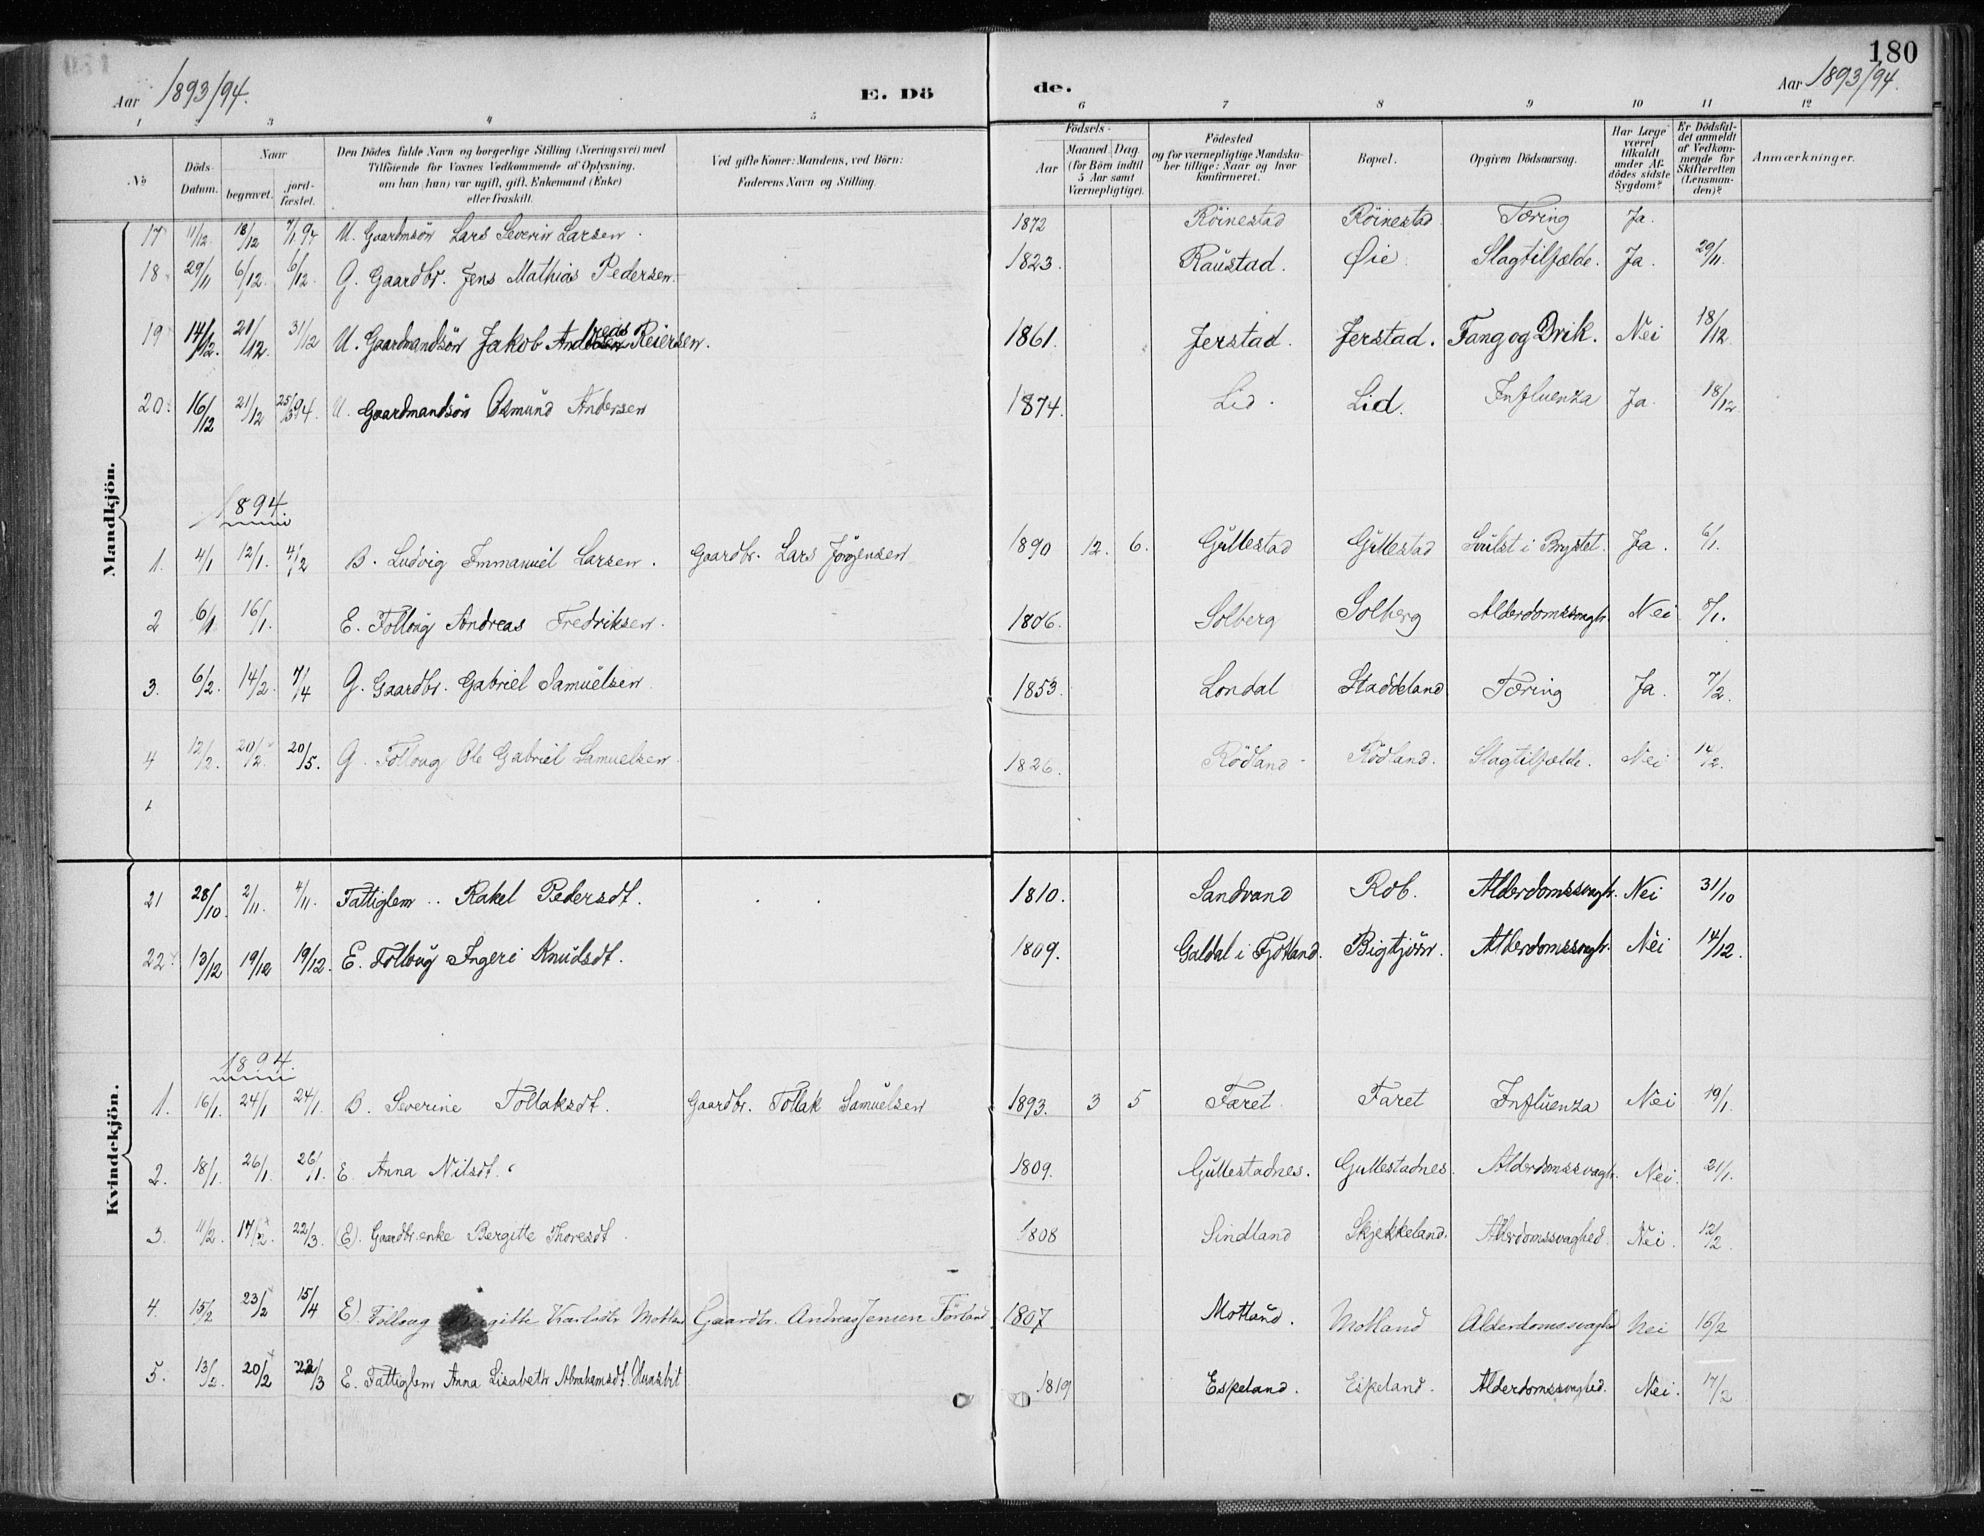 180
Aar 1893/94. E. Dö de. Aar 1893/94.
1 2 3 4 5 6 7 8 9 10 11 12
No
Döds-Datum.
Naar
begravet.
jord-fæstet.
Den Dödes fulde Navn og borgerlige Stilling (Næringsvei) med
Tilföiende for Voxnes Vedkommende af Oplysning,
om han (hun) var ugift, gift, Enkemand (Enke)
eller fraskilt.
Ved gifte Koner: Mandens, ved Börn:
Faderens Navn og Stilling.
Födsels-
Aar
Maaned. Dag.
(for Börn indtil
5 Aar samt
Værnepligtige).
Födested
og for værnepligtige Mandska-
ber tillige: Naar og hvor
konfirmeret.
Bopæl.
Opgiven Dödsaarsag.
Har Læge
været
tilkaldt
under Af-
dödes sidste
Sygdom?
Er Dödsfal-
det anmeldt
af Vedkom-
mende for
Skifteretten
(Lensman-
den)?
Anmærkninger.
Mandkjön.
17 11/12. 18/12 7/1 94 U. Gaardmsön Lars Severin Larsen. 1872 Röinestad Röinestad Tæring Ja.
18 29/11 6/12. 6/12. G. Gaardbr. Jens Mathias Pedersen. 1823. Raustad. Øie. Slagtilfælde. Ja. 29/11.
19 14/12. 21/12. 31/12 U. Gaardmandsön Jakob Andreas Reiersen. 1861. Jerstad. Jerstad. Fang og Drik. Nei 18/12
20. 16/12 21/12 25/3 94. U. Gaardmandsön Osmund Andersen 1874. Lid. Lid. Influenza Ja. 18/12
1894.
1. 4/1 12/1. 4/2 B. Ludvig Immanuel Larsen. Gaardbr. Lars Jörgensen 1890 12. 6. Gullestad Gullestad Svulst i Brystet. Ja. 6/1.
2 6/1 16/1. E. Follaug Andreas Fredriksen. 1806. Solberg Solberg Alderdomssvagh. Nei 8/1.
3. 6/2. 14/2. 7/4 G. Gaardbr. Gabriel Samuelsen 1853. Londal Staddeland Tæring Ja. 7/2.
4 12/2. 20/2. 20/5. G. Follaug Ole Gabriel Samuelsen. 1826. Rödland Rödland. Slagtilfælde. Nei 14/2.
Kvindekjön.
21 28/10. 2/11. 4/11. Fattiglem Rakel Pedersdt. 1810. Sandvand Rob. Alderdomssvagh. Nei 31/10
22 13/12 19/12 19/12. E. Follaug Ingeri Knudsdt. 1809. Galdal i Fjotland. Bigtjörn. Alderdomssvagh. Nei 14/12.
1894.
1. 16/1. 24/1 24/1. B. Severine Tollaksdt. Gaardbr. Tollak Samuelsen 1893. 3 5 Faret Faret Influenza Nei 19/1.
2. 18/1. 26/1. 26/1. E Anna Nilsdt. 1809. Gullestadnes. Gullestadnes. Alderdomssvagh. Nei. 21/1.
3. 11/2. 17/2. 22/3. (E). Gaardbr.enke Bergitte Thoresdt. 1808 Sindland Skjekkeland. Alderdomssvaghed. Nei. 12/2
4. 15/2 23/2 15/4 E) Follaug Motland Gaardbr. Andreas Jensen 1807 Motland. Motland Alderdomssvaghed Nei 16/2
5. 13/2. 20/2 22/3 E. Fattiglem Anna Lisabeth Abrahamsdt. 1819 Espeland. Espeland. Alderdomssvaghed. Nei. 17/2